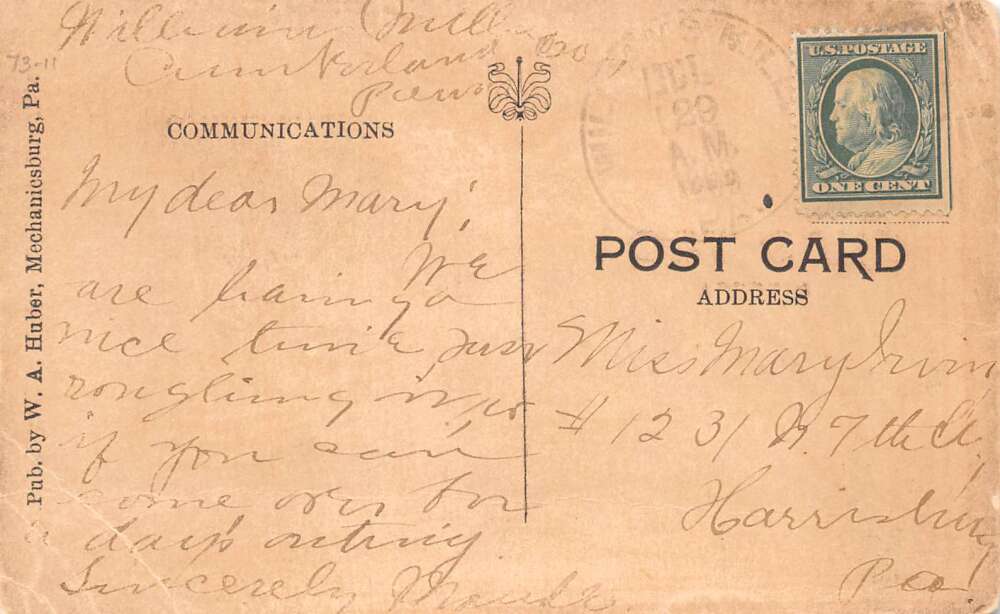 Williams Mill
Cumberland Co
Penn
73-11
Pub. by W. A. Huber, Mechanicsburg, Pa.
COMMUNICATIONS
My dear Mary,
We
are having a
nice time just
roughing it, so
if you can
come over for
a day's outing
Sincerely Maude
JUL
29
A.M
U.S. POSTAGE
ONE CENT
POST CARD
ADDRESS
Miss Mary Irvin
# 1231 N. 7th St,
Harrisburg
Pa.